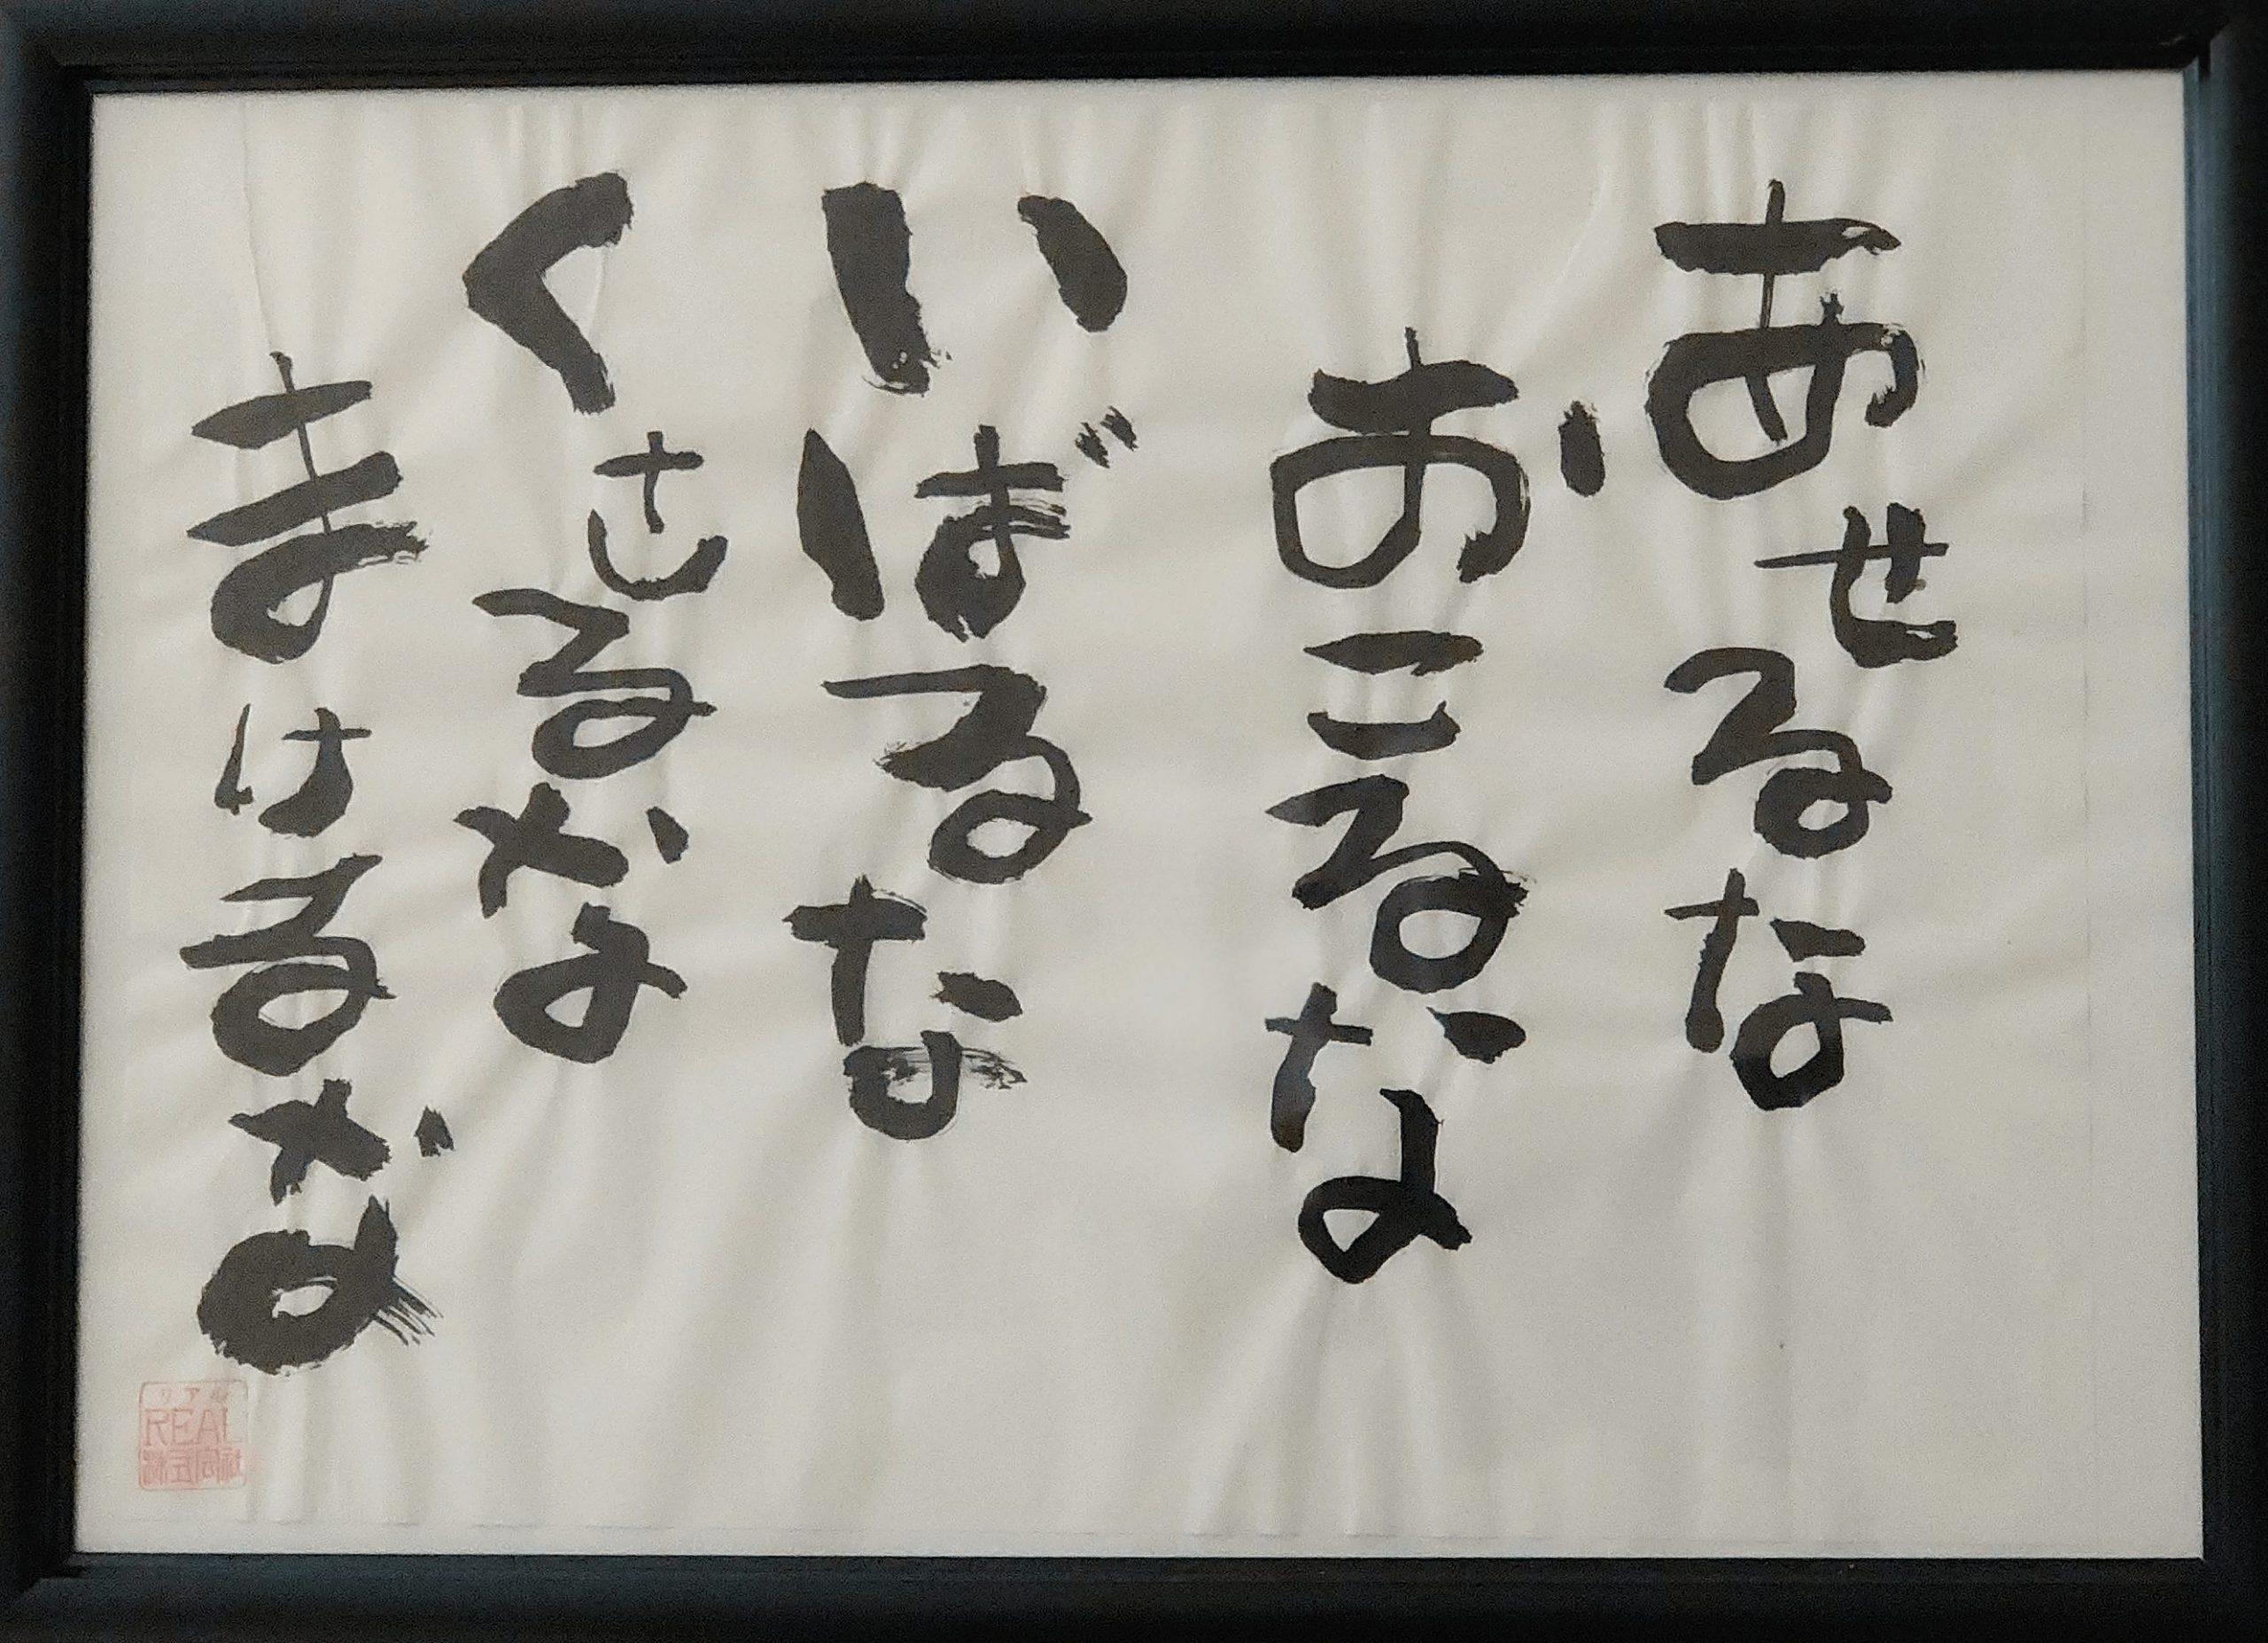 あせるな
おこるな
いばるな
くさるな
まけるな
リアル
REAL